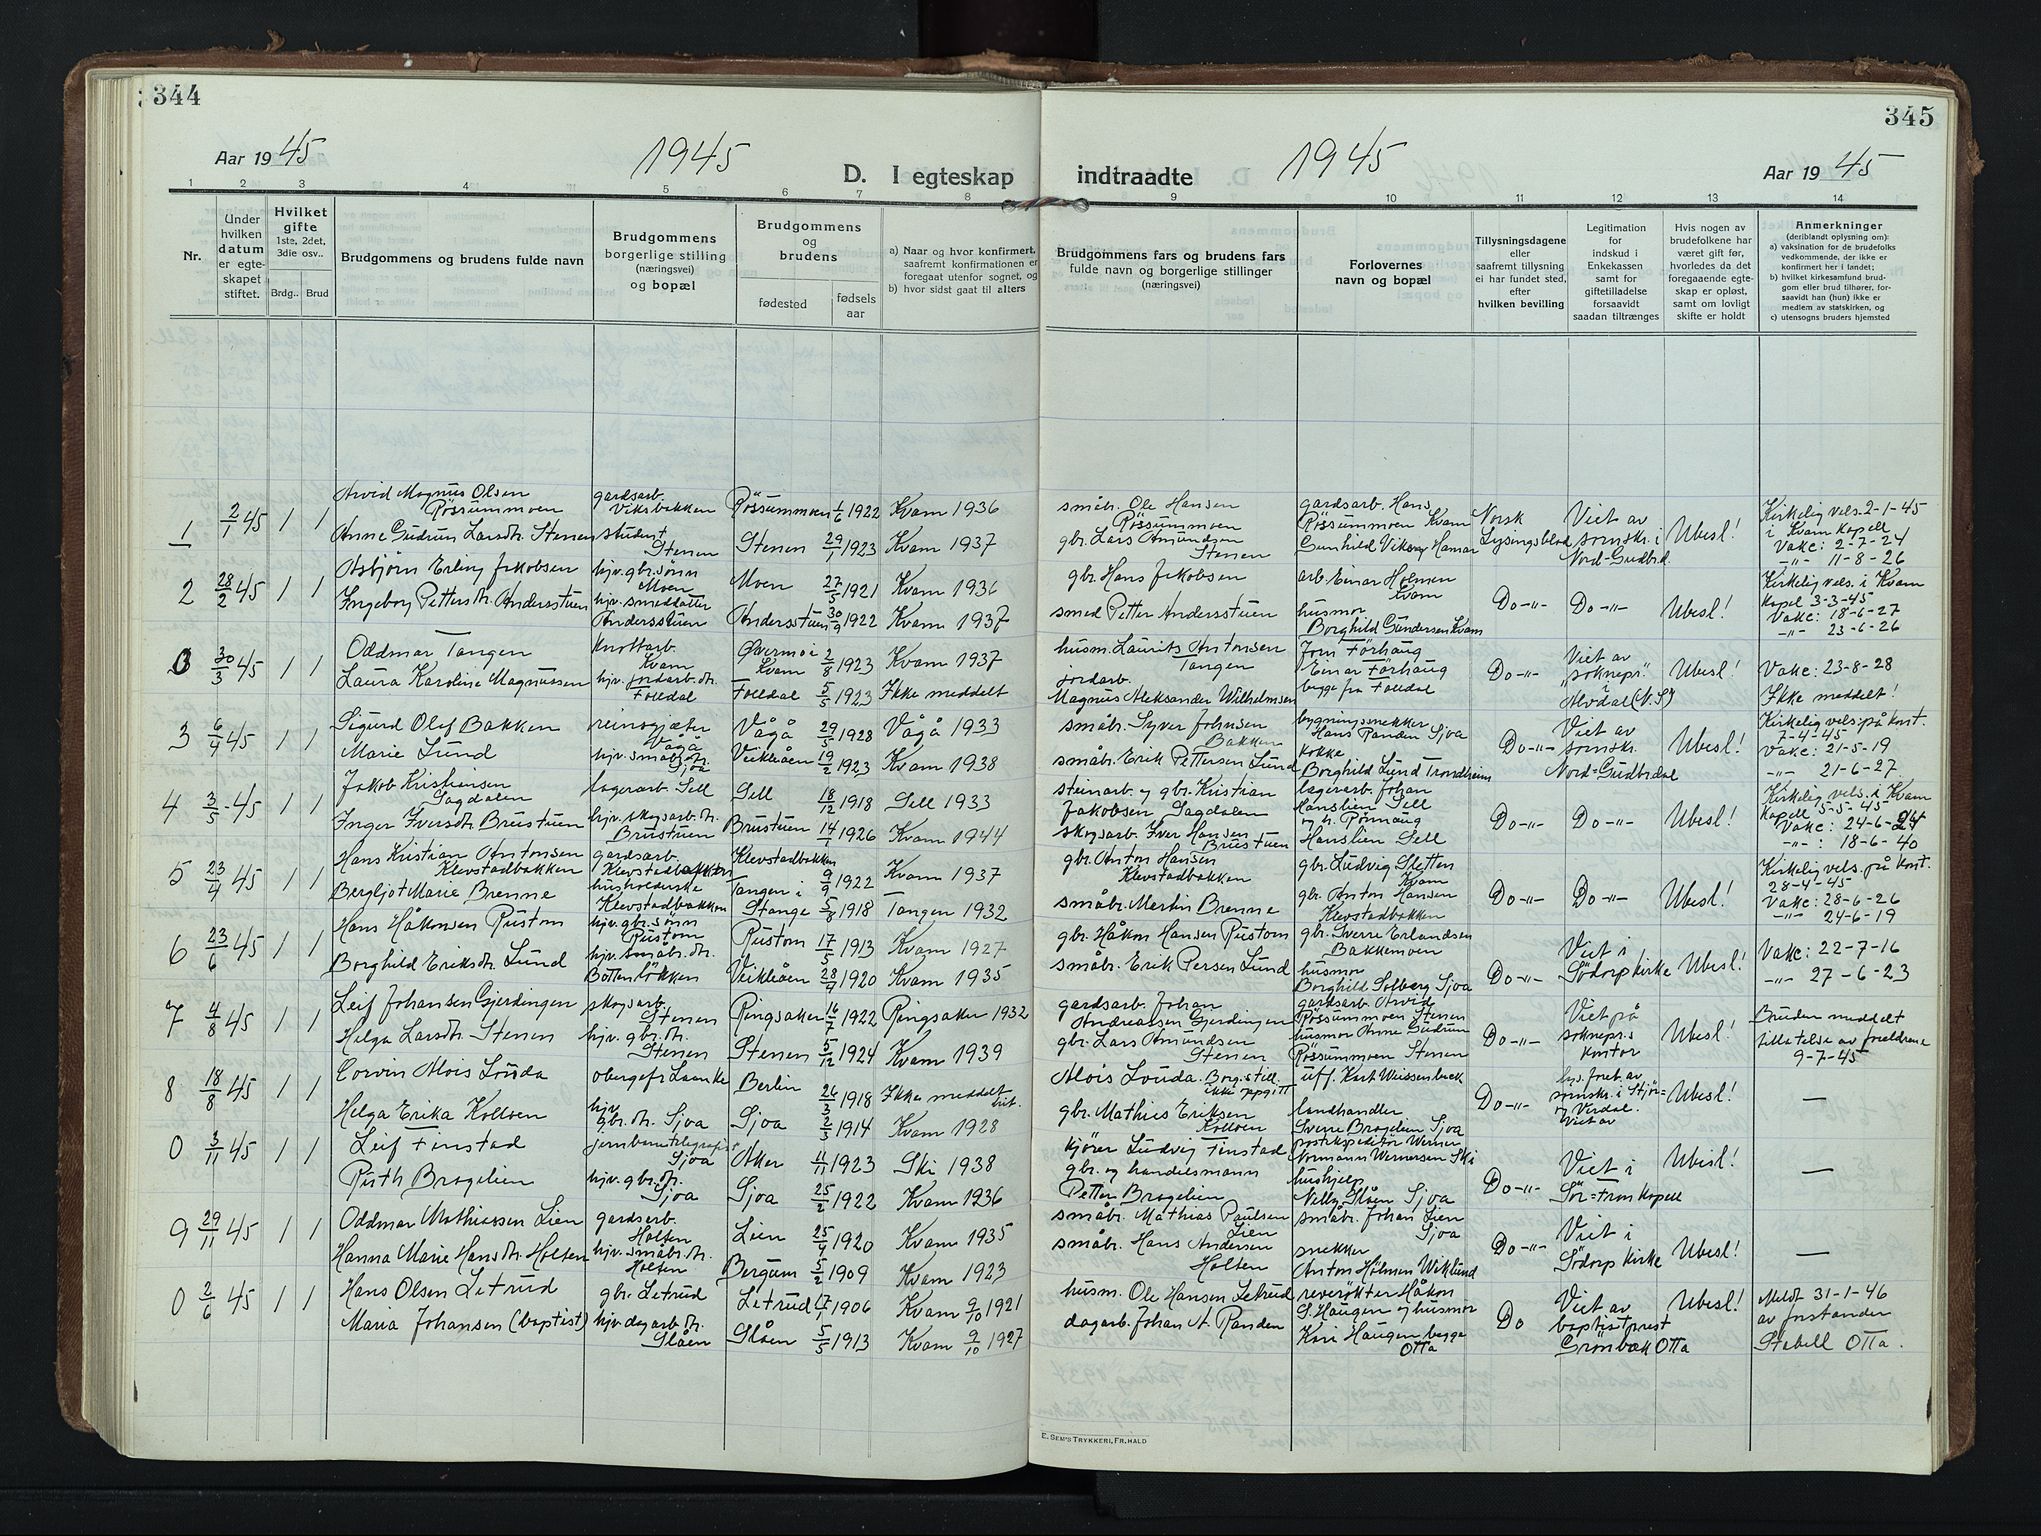 344
345
Aar 1945
1945
D. I egteskap
indtraadte
1945
Aar 1945
1 2 3 4 5 6 7 8 9 10 11 12 13 14
Nr.
Under hvilken datum er egteskapet stiftet.
Hvilket gifte 1ste, 2det, 3die osv..
Brdg.. Brud
Brudgommens og brudens fulde navn
Brudgommens borgerlige stilling (næringsvei) og bopæl
Brudgommens og brudens
fødested
fødsels aar
a) Naar og hvor konfirmert, saafremt konfirmationen er foregaat utenfor sognet, og
b) hvor sidst gaat til alters
Brudgommens fars og brudens fars fulde navn og borgerlige stillinger (næringsvei)
Forlovernes navn og bopæl
Tillysningsdagene eller saafremt tillysning ei har fundet sted, efter hvilken bevilling
Legitimation for indskud i Enkekassen samt for giftetilladelse forsaavidt saadan tiltrænges
Hvis nogen av brudefolkene har været gift før, hvorledes da det foregaaende egteskap er opløst, samt om lovligt skifte er holdt
Anmerkninger (deriblandt oplysning om):
a) vaksination for de brudefolks vedkommende, der ikke er konfirmert her i landet;
b) hvilket kirkesamfund brudgom eller brud tilhører, forsaavidt han (hun) ikke er medlem av statskirken, og
c) utensogns bruders hjemsted
1 2/1 45 1 1
Arvid Magnus Olsen Røssummoen gardsarb. Viksbakken Røssummoen 1/6 1922 Kvam 1936
Anne Gudrun Larsdtr. Stenen student Stenen Stenen 29/1 1923 Kvam 1937
småbr. Ole Hansen Røssummoen
gbr. Lars Amundsen Stenen
gardsarb. Hans Røssummoen Kvam
Gunhild Hamar
Norsk Lysingsblad
Viet av sorenskr. i Nord-Gudbrd.
Ubesl!
Kirkelig vels. 2-1-45 i Kvam kapell
Vakc: 2-7-24
-"- 11-8-26
2 28/2 45 1 1
Asbjørn Erling Jakobsen hjv. gbr. sønn Moen Moen 27/5 1921 Kvam 1936
Ingeborg Pettersdtr. Andersstuen hjv. smeddatter Andersstuen Andersstuen 30/9 1922 Kvam 1937
gbr. Hans Jakobsen
smed Petter Andersstuen
arb. Einar Holmen Kvam
husmor Borghild Gundersen Kvam
Do -"-
Do -"-
Ubesl!
Kirkelig vels. i Kvam kapel 3-3-45
Vakc: 18-6-27
-"- 23-6-26
0 30/3 45 1 1
Oddmar Tangen knottarb. Kvam Øvermoi Kvam 2/8 1923 Kvam 1937
Laura Karoline Magnussen hjv. jordarb. dtr. Folldal Folldal 5/5 1923 Ikke meddelt
husm. Laurits Antonsen Tangen
jordarb. Magnus Aleksander Wilhelmsen
Jorn Førhaug
Einar Førhaug begge fra Folldal
Do -"-
Viet av "soknepr." i Alvdal (N.S)
Ubesl!
Vakc: 23-8-28
Ikke meddelt!
3 6/4 45 1 1
Sigurd Olaf Bakken reinsgjæter Vågå Vågå 29/5 1928 Vågå 1933
Marie Lund hjv. småbr. dtr. Sjoa Veikleåen 19/2 1923 Kvam 1938
småbr. Syver Johnsen Bakken
småbr. Erik Pettersen Lund
bygningssnekker Hans Randen Sjoa
kokke Borghild Lund Trondheim
Do -"-
Viet av sorenskr. Nord-Gudbdal
Ubesl!
Kirkelig vels. på kont. 7-4-45
Vakc: 21-5-19
-"- 21-6-27
4 3/5 -45 1 1
Jakob Kristiansen Sagdalen lagerarb. Sell Sell 18/12 1918 Sell 1933
Inger Iversdtr. Brustuen hjv. skogsarb. dtr. Brustuen Brustuen 14/1 1926 Kvam 1944
steinarb. og gbr. Kristian Jakobsen Sagdalen
skogsarb. Iver Hansen Brustuen
lagerarb. Johan Hanslien Sell
og fr. Rønnaug Hanslien Sell
Do -"-
Do -"-
Ubesl!
Kirkelig vels. i Kvam kapell 5-5-45
Vakc: 24-6-24
-"- : 18-6-40
5 23/4 45 1 1
Hans Kristian Antonsen Klevstadbakken gardsarb. Klevstadbakken Klevstadbakken 9/9 1922 Kvam 1937
Bergljot Marie Brenne husholderske Klevstadbakken Tangen i Stange 5/8 1918 Tangen 1932
gbr. Anton Hansen Klevstadbakken
småbr. Martin Brenne
gbr. Ludvig Sletten Kvam
gbr. Anton Hansen Klevstadbakken
Do -"-
Do -"-
Ubesl!
Kirkelig vels. på kont. 28-4-45
Vakc: 28-6-26
-"- 24-6-19
6 23/6 45 1 1
Hans Håkonsen Rustom hjv. gbr. sønn Rustom Rustom 17/5 1913 Kvam 1927
Borghild Eriksdtr. Lund hjv. småbr. dtr. Bottenløkken Veikleåen 28/4 1920 Kvam 1935
gbr. Håkon Hansen Rustom
småbr. Erik Persen Lund
gbr. Sverre Erlandsen Bakkemoen
husmor Borghild Solberg Sjoa
Do -"-
Viet i Sødorp kirke
Ubesl!
Vakc: 22-7-16
-"- 27-6-23
7 4/8 45 1 1
Leif Johansen Gjerdingen skogsarb. Stenen Ringsaker 16/7 1922 Ringsaker 1932
Helga Larsdtr. Stenen hjv. gbr. dtr. Stenen Stenen 5/12 1924 Kvam 1939
gardsarb. Johan Andreassen Gjerdingen
gbr. Lars Amundsen Stenen
gardsarb. Arvid Røssummoen Stenen
husmor Anne Gudrun Røssummoen Stenen
Do -"-
Viet på soknepr.s kontor
Ubesl!
Bruden meddelt tillatelse av foreldrene 9-7-45
8 18/8 45 1 1
Corvin Alois Louda Berlin 26/3 1918 Ikke meddelt
Helga Erika Kolloen hjv. gbr. dtr. Sjoa Sjoa 2/3 1914 Kvam 1928
Alois Louda. Borg. still. ikke oppgitt
gbr. Mathias Eriksen Kolloen
uff. Kart Weissenbeck
landhandler Sverre Bragelien Sjoa
Do -"-
lys. foret. av sorenskr. i Stjør- og Verdal. Viet av
Ubesl!
—
0 3/11 45 1 1
Leif Finstad jernbanetelegrafist Sjoa Aker 11/11 1923 Ski 1938
Ruth Bragelien hjv. gbr. dtr. Sjoa Sjoa 25/2 1922 Kvam 1936
kjører Ludvig Finstad
gbr. og handelsmann Petter Bragelien
postekspeditør Werner Normann Wernersen Ski
hushjelp Nelly Slåen Sjoa
Do -"-
Viet i Sør-Fron kapell
Ubesl!
—
9 29/11 45 1 1
Oddmar Mathiassen Lien gardsarb. Holten Lien 25/4 1920 Kvam 1935
Hanna Marie Hansdtr. Holten hjv. småbr. dtr. Holten Bergum 5/2 1909 Kvam 1923
småbr. Mathias Paulsen Lien
småbr. Hans Andersen Holten
småbr. Johan Lien Sjoa
snekker Anton Holmen Wiklund
Do -"-
Viet i Sødorp kirke
Ubesl!
—
0 2/6 45 1 1
Hans Olsen Letrud gbr. Letrud Letrud 17/1 1906 Kvam 9/10 1921
Maria Johansen (baptist) hjv. dagarb. dtr. Slåen Slåen 5/5 1913 Kvam 9/10 1927
husm. Ole Hansen Letrud
dagarb. Johan A. Randen
reverøkter Håkon S. Haugen og husmor Kari Haugen begge Otta
Do
Viet av baptistprest Grønbæk Otta
Ubesl!
Meldt 31-1-46 av forstander Stabell Otta.
E. SEM'S TRYKKERI, FR.HALD